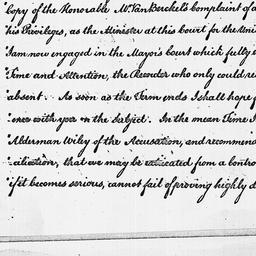 "Copy of the Honorable Mr. Van Berckel's Complaint of a
"his Privileges, as the Minister at this Court for the Uni
"I am now engaged in the Mayor's Court which fully e
"Time and Attention, the Recorder who only could re
"absent. As soon as the Term ends I shall hope f
"ence with you on the Subject. In the mean Time I
"Alderman Wiley of the Accusation, and recommend
"ciliation, that we may be extricated from a contro
"if it becomes serious, cannot fail of proving highly d